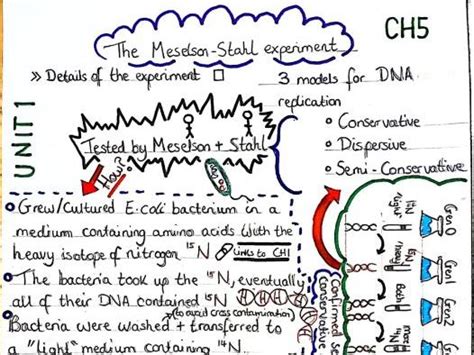 The Meselson-Stahl experiment
CH5
UNIT 1
» Details of the experiment
3 models for DNA
replication
Conservative
Dispersive
Semi-Conservative
Tested by Meselson + Stahl
How?
Grew/Cultured E.coli bacterium in a
medium containing amino acids with the
heavy isotope of nitrogen ¹⁵N
Links to CH1
The bacteria took up the ¹⁵N, eventually
all of their DNA contained ¹⁵N
(to avoid cross contamination)
Bacteria were washed + transferred to
a "light" medium containing ¹⁴N
Confirmed Se
Conservative
Gen 0
Light
Gen1
¹⁵N
heavy
Gen2
Both